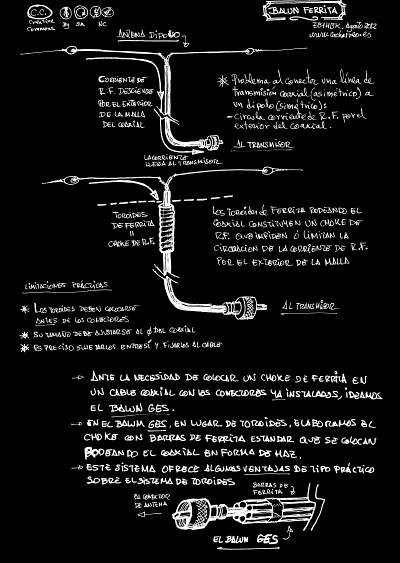 C.C.
CREATIVE
COMMONS
BY SA NC
BALUN FERRITA
AGOSTO 2012
ANTENA DIPOLO
CORRIENTE DE
R.F. DESCIENDE
POR EL EXTERIOR
DE LA MALLA
DEL COAXIAL
* Problema al conector una línea de
transmisión coaxial (asimétrico) a
un dipolo (simétrico):
- Circula corriente de R.F. por el
exterior del coaxial.
AL TRANSMISOR
LA CORRIENTE
LLEGA AL TRANSMISOR
TOROIDES
DE FERRITA
=
CHOKE DE R.F.
LOS TOROIDES DE FERRITA RODEANDO EL
COAXIAL CONSTITUYEN UN CHOKE DE
R.F. QUE IMPIDEN Ó LIMITAN LA
CIRCULACION DE LA CORRIENTE DE R.F.
POR EL EXTERIOR DE LA MALLA
LIMITACIONES PRÁCTICAS
* LOS TOROIDES DEBEN COLOCARSE
ANTES DE LOS CONECTORES
* SU TAMAÑO DEBE AJUSTARSE AL Ø DEL COAXIAL
* ES PRECISO SUJETARLOS ENTRE SÍ Y FIJARLOS AL CABLE
AL TRANSMISOR
→ ANTE LA NECESIDAD DE COLOCAR UN CHOKE DE FERRITA EN
UN CABLE COAXIAL CON LOS CONECTORES YA INSTALADOS, IDEAMOS
EL BALUN GES.
→ EN EL BALUN GES, EN LUGAR DE TOROIDES, ELABORAMOS EL
CHOKE CON BARRAS DE FERRITA ESTANDAR QUE SE COLOCAN
RODEANDO EL COAXIAL EN FORMA DE HAZ.
→ ESTE SISTEMA OFRECE ALGUNAS VENTAJAS DE TIPO PRÁCTICO
SOBRE EL SISTEMA DE TOROIDES
BARRAS DE
FERRITA
DE ANTENA
EL BALUN GES